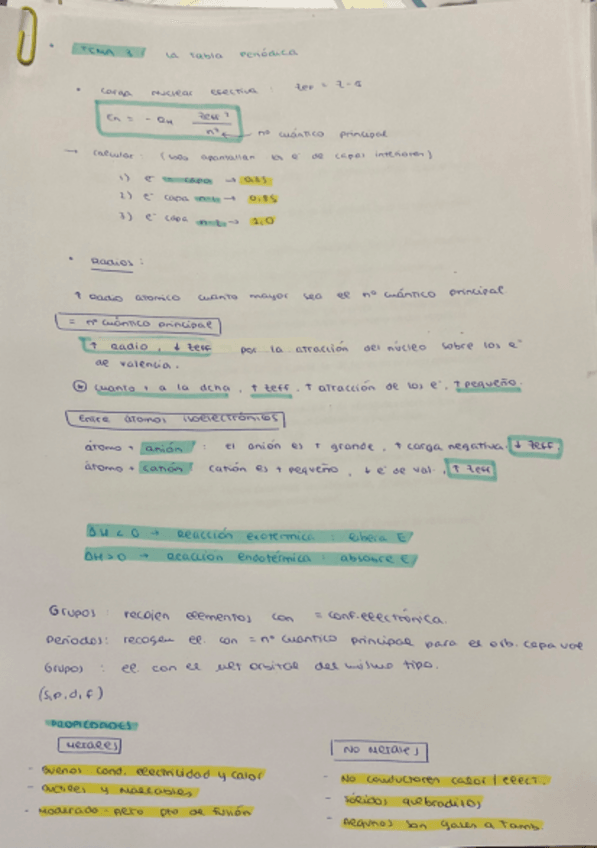 TEMA 3 La tabla Periódica
• carga nuclear efectiva : Zef = Z - σ
En = - RH Zeff² / n² ← nº cuántico principal
→ calcular : (solo apantallan los e⁻ de capas interiores)
1) e⁻ capa → 0.35
2) e⁻ capa n-1 → 0.85
3) e⁻ capa → 1.0
• Radios :
↑ Radio atómico cuanto mayor sea el nº cuántico principal
= nº cuántico principal
↑ radio, ↓ Zeff por la atracción del núcleo sobre los e⁻
de valencia.
cuanto + a la dcha, ↑ Zeff, ↑ atracción de los e⁻, ↑ pequeño.
Entre átomos isoelectrónicos
átomo + anión : el anión es + grande, ↑ carga negativa. ↓ Zeff.
átomo + catión catión es + pequeño, ↓ e⁻ de val., ↑ Zeff
ΔH < 0 → Reacción exotérmica : libera E
ΔH > 0 → Reacción endotérmica : absorbe E
Grupos : recojen elementos con = conf. electrónica.
Periodos: recogen el. con = nº cuántico principal para el orb. capa val
Grupos : el. con el últ orbital del mismo tipo.
(s, p, d, f)
PROPIEDADES
METALES
NO METALES
- Buenos cond. electricidad y calor
- No conductores calor / elect.
- Dúctiles y maleables
- Sólidos quebradizos
- Moderado - alto pto de fusión
- Algunos son gases a Tamb.